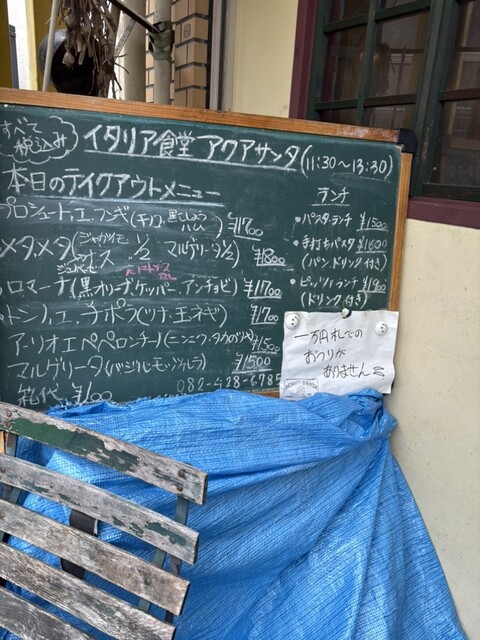 すべて
税込み
イタリア食堂 アクアサンタ (11:30〜13:30)
本日のテイクアウトメニュー
プロシュート,エ,フンギ(キノコ,黒こしょう
ハム) ¥1700
メタ,メタ(ジャガイモ 1/2 マルゲリータ 1/2) ¥1800
ジェノベーゼ
ロマーナ(黒オリーブ,ケッパー,アンチョビ) ¥1700
トンノ,エ,チポラ(ツナ,玉ネギ) ¥1700
アーリオエペペロンチーノ(ニンニク,タカのツメ) ¥1500
マルゲリータ(バジル,モッツァレラ) ¥1500
箱代 ¥100
082-428-6785
ランチ
・パスタランチ ¥1500
・手打ちパスタ ¥1600
(パン,ドリンク付き)
・ピッツァランチ ¥1900
(ドリンク付き)
一万円札での
おつりが
ありません